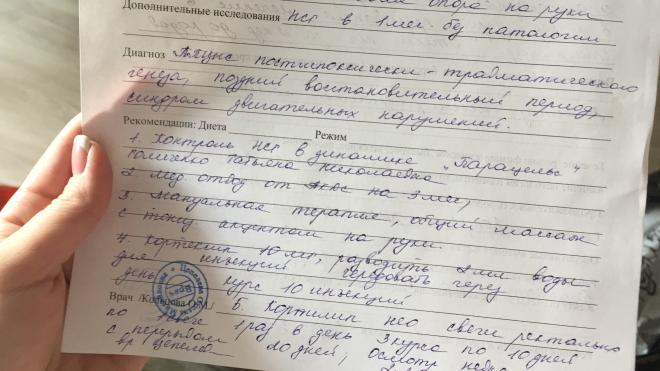 опора на руки
Дополнительные исследования НСГ в 1 мес без патологии
Диагноз постгипоксически-травматического
генеза, поздний восстановительный период,
синдром двигательных нарушений.
Рекомендации: Диета Режим
1. Контроль НСГ в динамике "Парацельс"
Татьяна Николаевна
2. Мед. отвод от на 3 мес,
3. Мануальная терапия, общий массаж
с акцентом на руки.
4. Кортексин 10 мг, разводить 2 мл воды
для инъекций чередовать через
день курс 10 инъекций
Врач
5. Кортилин нео свечи ректально
по 1 свече 1 раз в день 3 курса по 10 дней
с перерывом 20 дней, осмотр